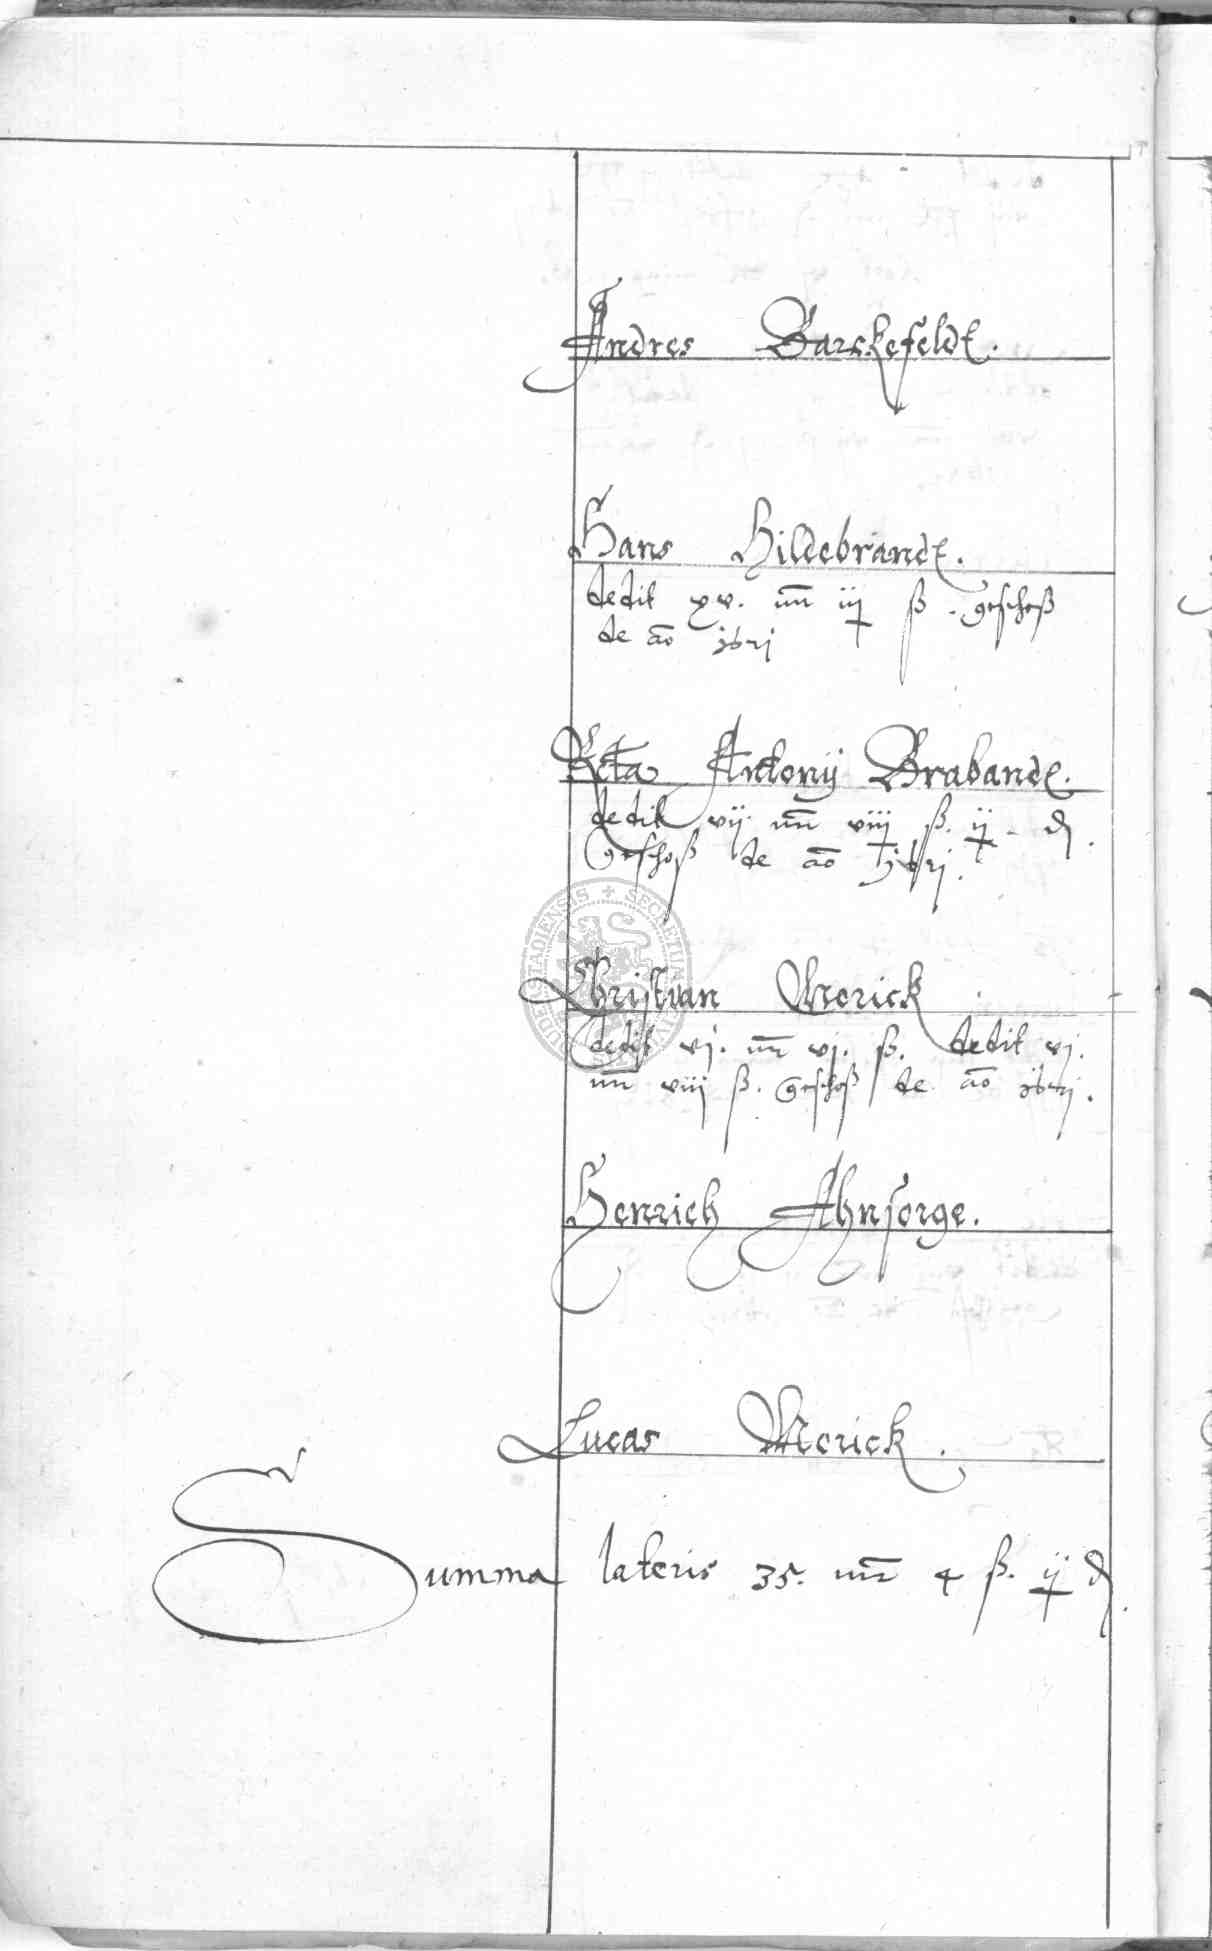 Andres Barckefeldt.
Hans Hildebrandt.
dedit xv. mr iij ß. geschoß
de ao 1621
Antonij Brabandt.
dedit vij mr viij ß. ij d
Geschoß de ao 1621.
Christian Merick
dedit vj. mr vj. ß. dedit vj.
mr viij ß. Geschoß de ao 1621.
Henrich Ahnsorge.
Lucas Merick.
Summa lateris 35. mr 4 ß. ij d.